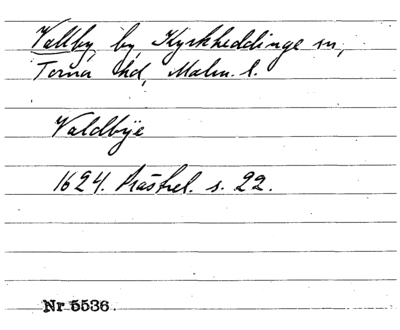 Vallby, by, Kyrkheddinge sn,
Torna hd, Malm. l.
Valdbÿe
1624. s. 22.
Nr 5536.